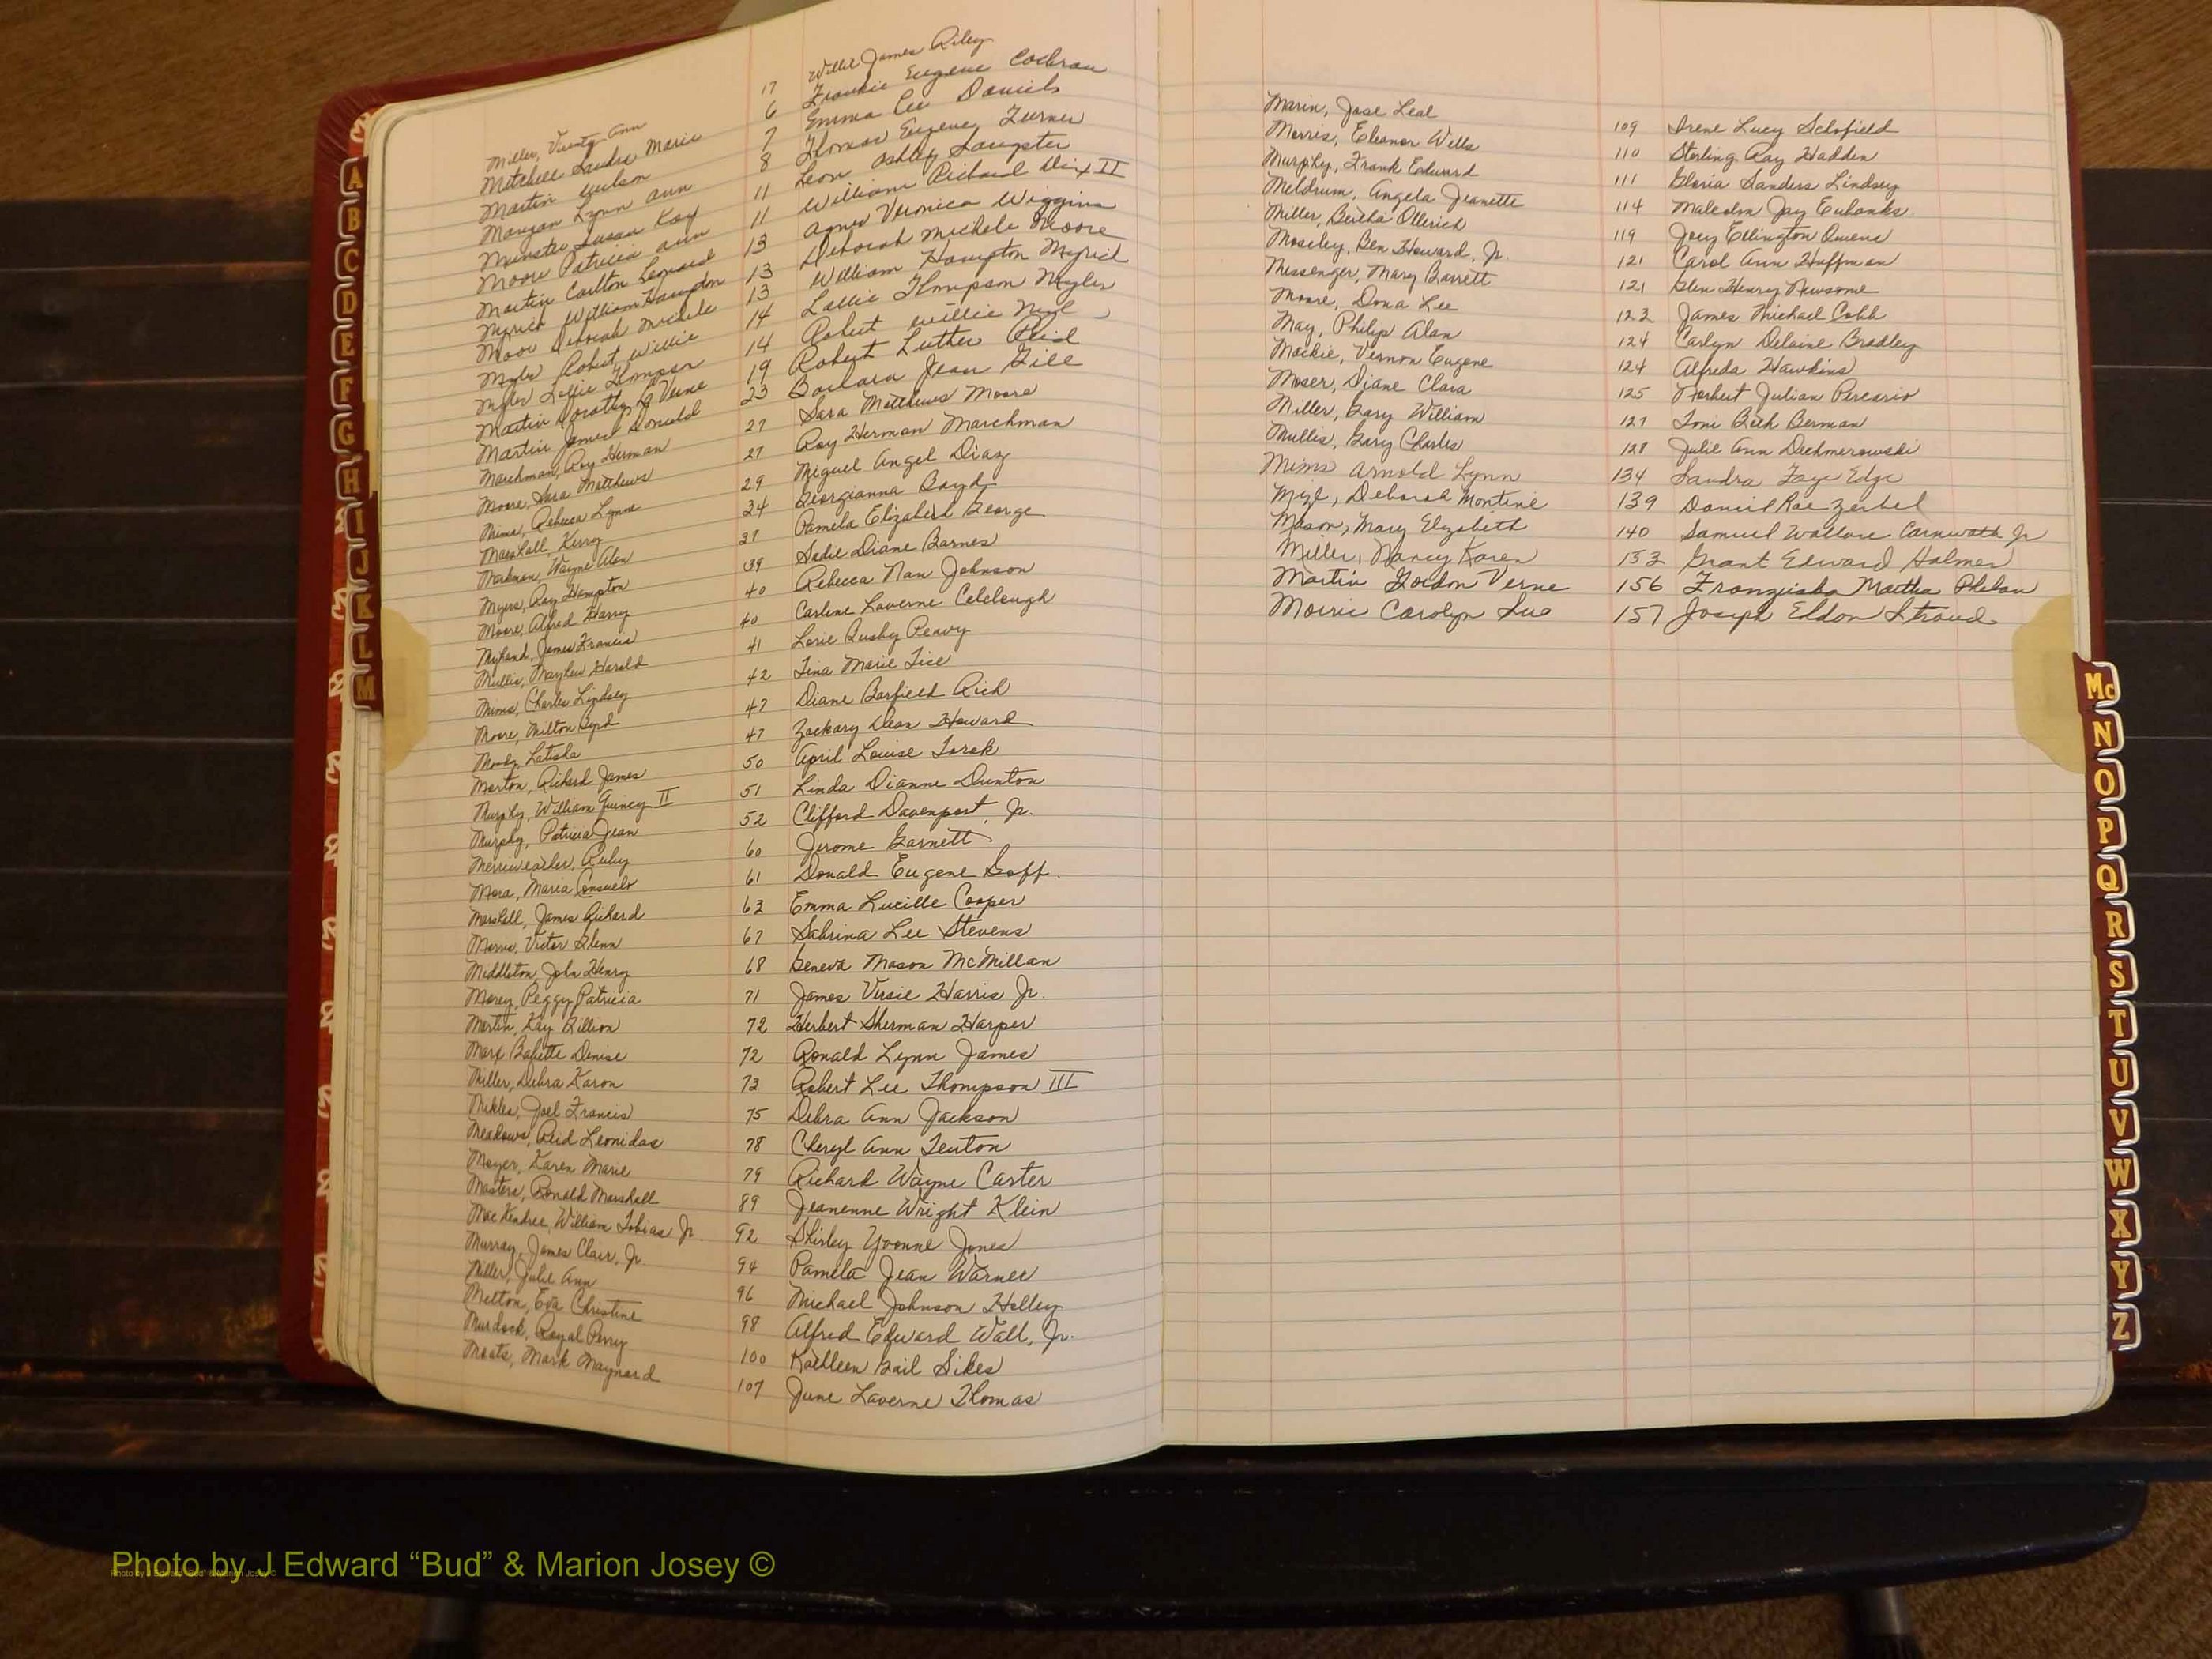 Miller, Ann 17 Willie James Riley
Mitchell Sandra Marie 6 Frankie Eugene Cochran
Martin Wilson 7 Emma Lee Daniels
Morgan Lynn Ann 8 Thomas Eugene Turner
Minster Susan Kay 11 Leon Ashley Sangster
Moore Patricia Ann 11 William Richard Dix II
Martin Carlton Leonard 13 Agnes Veronica Wiggins
Myrick William Hampton 13 Deborah Michele Moore
Moore Deborah Michele 13 William Hampton Myrick
Myler Robert Willie 14 Lollie Thompson Myler
Myler Lollie Thompson 14 Robert Willie
Martin Dorothy LaVerne 19 Robert Luther Reid
Martin James Donald 23 Barbara Jean Gill
Marchman, Roy Herman 27 Sara Matthews Moore
Moore, Sara Matthews 27 Roy Herman Marchman
Mims, Rebecca Lynne 29 Miguel Angel Diaz
Marshall, Kerry 34 Georgianna Boyd
Markman, Wayne Alan 37 Pamela Elizabeth George
Myers, Ray Hampton 39 Sadie Diane Barnes
Moore, Alfred Harry 40 Rebecca Nan Johnson
Myhand, James Francis 40 Carlene Laverne Colclough
Mullis, Mayhew Harold 41 Lorie Busby Peavy
Mims, Charles Lindsey 42 Tina Marie Tice
Moore, Milton Byrd 47 Diane Barfield Rich
Moody, Latisha 47 Zackary Dean Howard
Morton, Richard James 50 April Louise Torok
Murphy, William Quincy II 51 Linda Dianne Dunton
Murphy, Patricia Jean 52 Clifford Davenport, Jr.
Merriweather, Ruby 60 Jerome Garnett
Mora, Maria Consuelo 61 Donald Eugene Goff.
Marshall, James Richard 63 Emma Lucille Cooper
Morris, Victor Glenn 67 Sabrina Lee Stevens
Middleton, John Henry 68 Geneva Mason McMillan
Morey, Peggy Patricia 71 James Versie Harris Jr.
Martin, Kay Billion 72 Herbert Sherman Harper
Marx Babette Denise 72 Ronald Lynn James
Miller, Debra Karon 73 Robert Lee Thompson III
Mikles, Joel Francis 75 Debra Ann Jackson
Meadows, Reid Leonidas 78 Cheryl Ann Teuton
Moyer, Karen Marie 79 Richard Wayne Carter
Masters, Ronald Marshall 89 Jeanenne Wright Klein
MacKendree, William Tobias Jr. 92 Shirley Yvonne Jones
Murray, James Clair, Jr. 94 Pamela Jean Warner
Miller, Julie Ann 96 Michael Johnson Holley
Melton, Eva Christine 98 Alfred Edward Wall, Jr.
Murdock, Royal Perry 100 Kathleen Gail Sikes
Moats, Mark Maynard 107 June Laverne Thomas
Marin, Jose Leal 109 Irene Lucy Schofield
Morris, Eleanor Wells 110 Sterling Ray Hadden
Murphy, Frank Edward 111 Gloria Sanders Lindsey
Meldrum, Angela Jeanette 114 Malcolm Jay Eubanks
Miller, Bertha Ollerich 119 Joey Ellington Owens
Moseley, Ben Howard, Jr. 121 Carol Ann Huffman
Messenger, Mary Barrett 121 Glen Henry Newsome
Moore, Dona Lee 123 James Michael Cobb
May, Philip Alan 124 Carlyn Delaine Bradley
Mackie, Vernon Eugene 124 Alfreda Hawkins
Moser, Diane Clara 125 Norbert Julian Percario
Miller, Gary William 127 Toni Beth Berman
Mullis, Gary Charles 128 Julie Ann Dachmerowski
Mims Arnold Lynn 134 Sandra Faye Edge
Mizl, Deborah Montine 139 Daniel Rae Zerbel
Mason, Mary Elizabeth 140 Samuel Wallace Carnwath Jr
Miller, Nancy Karen 153 Grant Edward Holmes
Martin Gordon Verne 156 Franziska Martha Phelan
Morris Carolyn Sue 157 Joseph Eldon Stroud
A
B
C
D
E
F
G
H
I
J
K
L
M
Mc
N
O
P
Q
R
S
T
U
V
W
X
Y
Z
Photo by J Edward “Bud” & Marion Josey ©